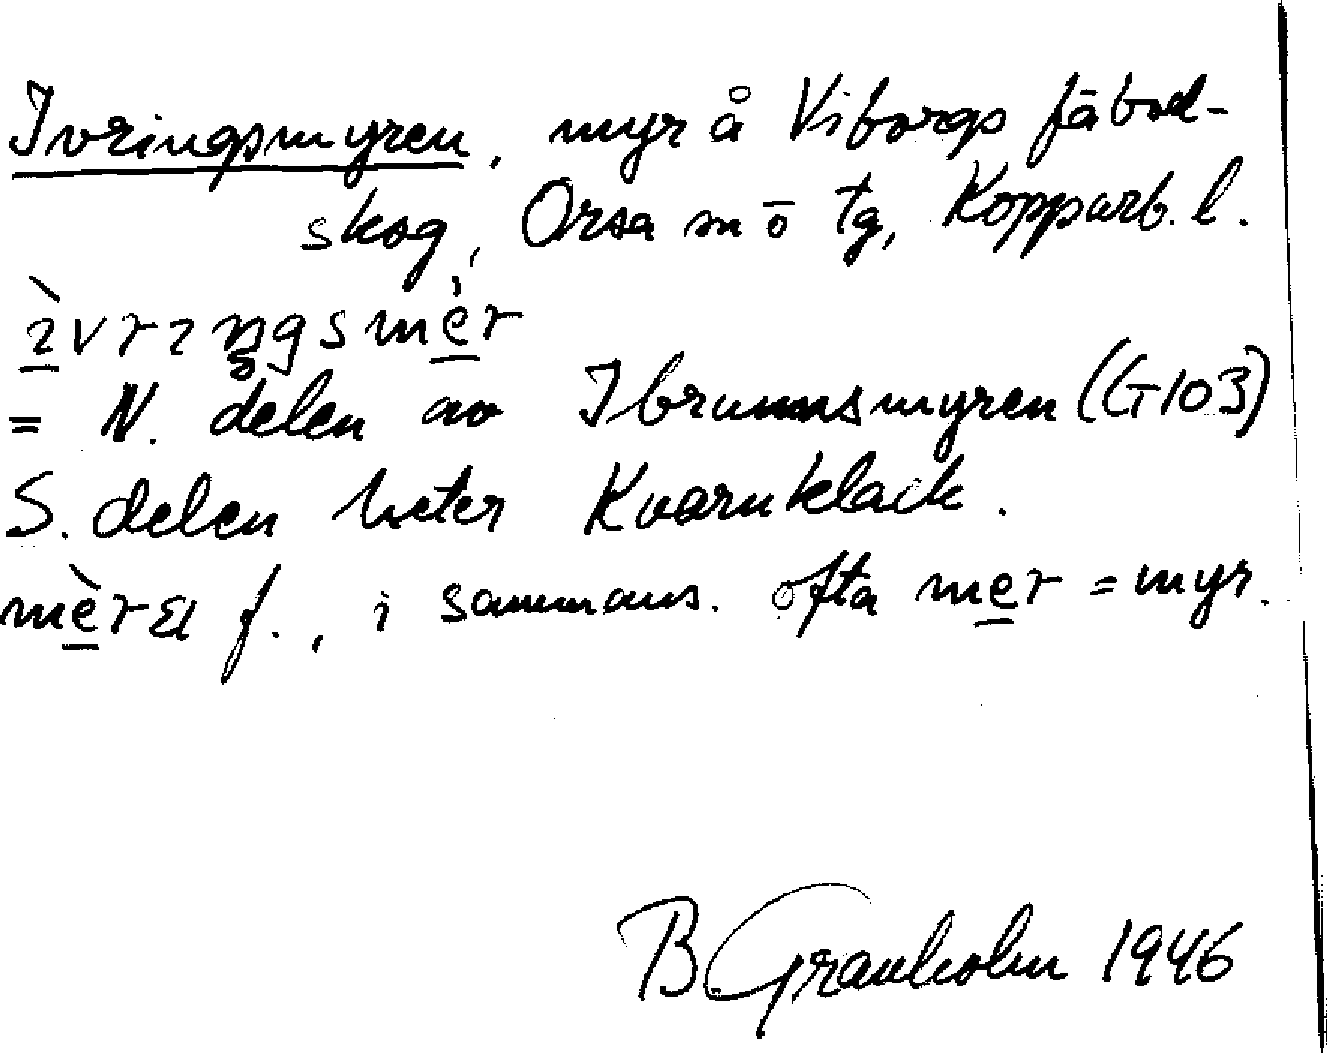 Ivringsmyren, myr å Viborgs fäbod-
skog, Orsa sn ö tg, Kopparb. l.
= N. delen av Ibrunnsmyren (G103)
S. delen heter Kvarnklack.
f., i sammans. ofta mer = myr.
B Granholm 1946